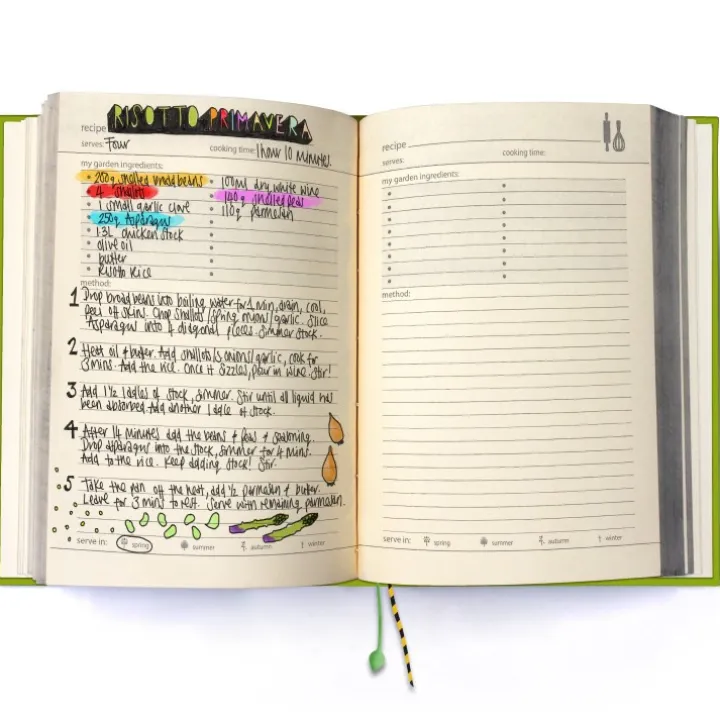 recipe RISOTTO PRIMAVERA
serves: Four cooking time: 1 hour 10 minutes
my garden ingredients:
200g shelled broad beans
4 shallots
1 small garlic clove
250g Asparagus
1.3L chicken stock
olive oil
butter
Risotto Rice
100ml dry white wine
140g shelled peas
110g parmesan
method:
1 Drop broad beans into boiling water for 1 min, drain, cool,
peel off skins. Chop shallots/spring onions/garlic. Slice
Asparagus into 4 diagonal pieces. Simmer stock.
2 Heat oil & butter. Add shallots/s.onions/garlic, cook for
3 mins. Add the rice. Once it sizzles, pour in wine. Stir!
3 Add 1½ ladles of stock, simmer. Stir until all liquid has
been absorbed. Add another ladle of stock.
4 After 14 minutes add the beans & peas & seasoning.
Drop asparagus into the stock, simmer for 4 mins.
Add to the rice. Keep adding stock! Stir.
5 Take the pan off the heat, add ½ parmesan & butter.
Leave for 3 mins to rest. Serve with remaining parmesan.
serve in: spring summer autumn winter
recipe
serves: cooking time:
my garden ingredients:
method:
serve in: spring summer autumn winter